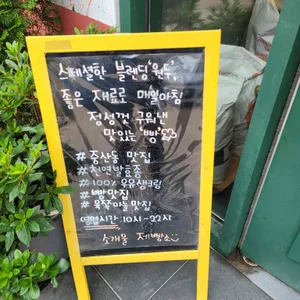 스페셜한 블렌딩'원두',
좋은 재료로 매일아침
정성껏 구워낸
맛있는 '빵'
#중산동 맛집
#천연발효종
#100% 우유생크림
#빵맛집
#육쪽마늘 맛집
영업시간:10시-22시
소개울 제빵소